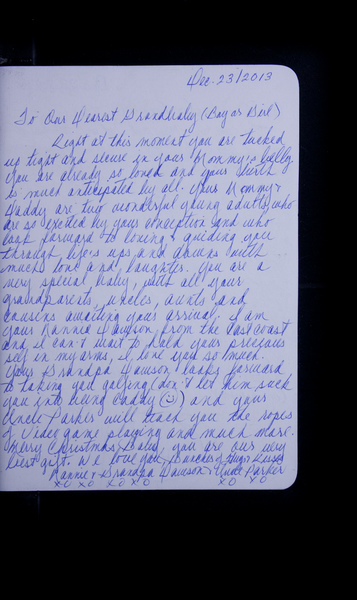 Dec. 23/2013
To Our Dearest Grandbaby (Boy or Girl)
Right at this moment you are tucked
up tight and secure in your Mommy's belly.
You are already so loved and your birth
is much anticipated by all. Your Mommy &
Daddy are two wonderful young adults, who
are so excited by your conception and who
look forward to loving & guiding you
through life's ups and downs with
much love and laughter. You are a
very special baby, with all your
grandparents, uncles, aunts and
cousins awaiting your arrival. I am
your Nannie Dawson from the East Coast
and I can't wait to hold your precious
self in my arms, I love you so much.
Your Grandpa Dawson looks forward
to taking you golfing (don't let him suck
you into being caddy ☺) and your
Uncle Parker will teach you the ropes
of video game playing and much more.
Merry Christmas Baby, you are our very
best gift. We love you Bunches of Hugs & Kisses
Nannie & Grandpa Dawson & Uncle Parker
xo xo xo xo xo xo